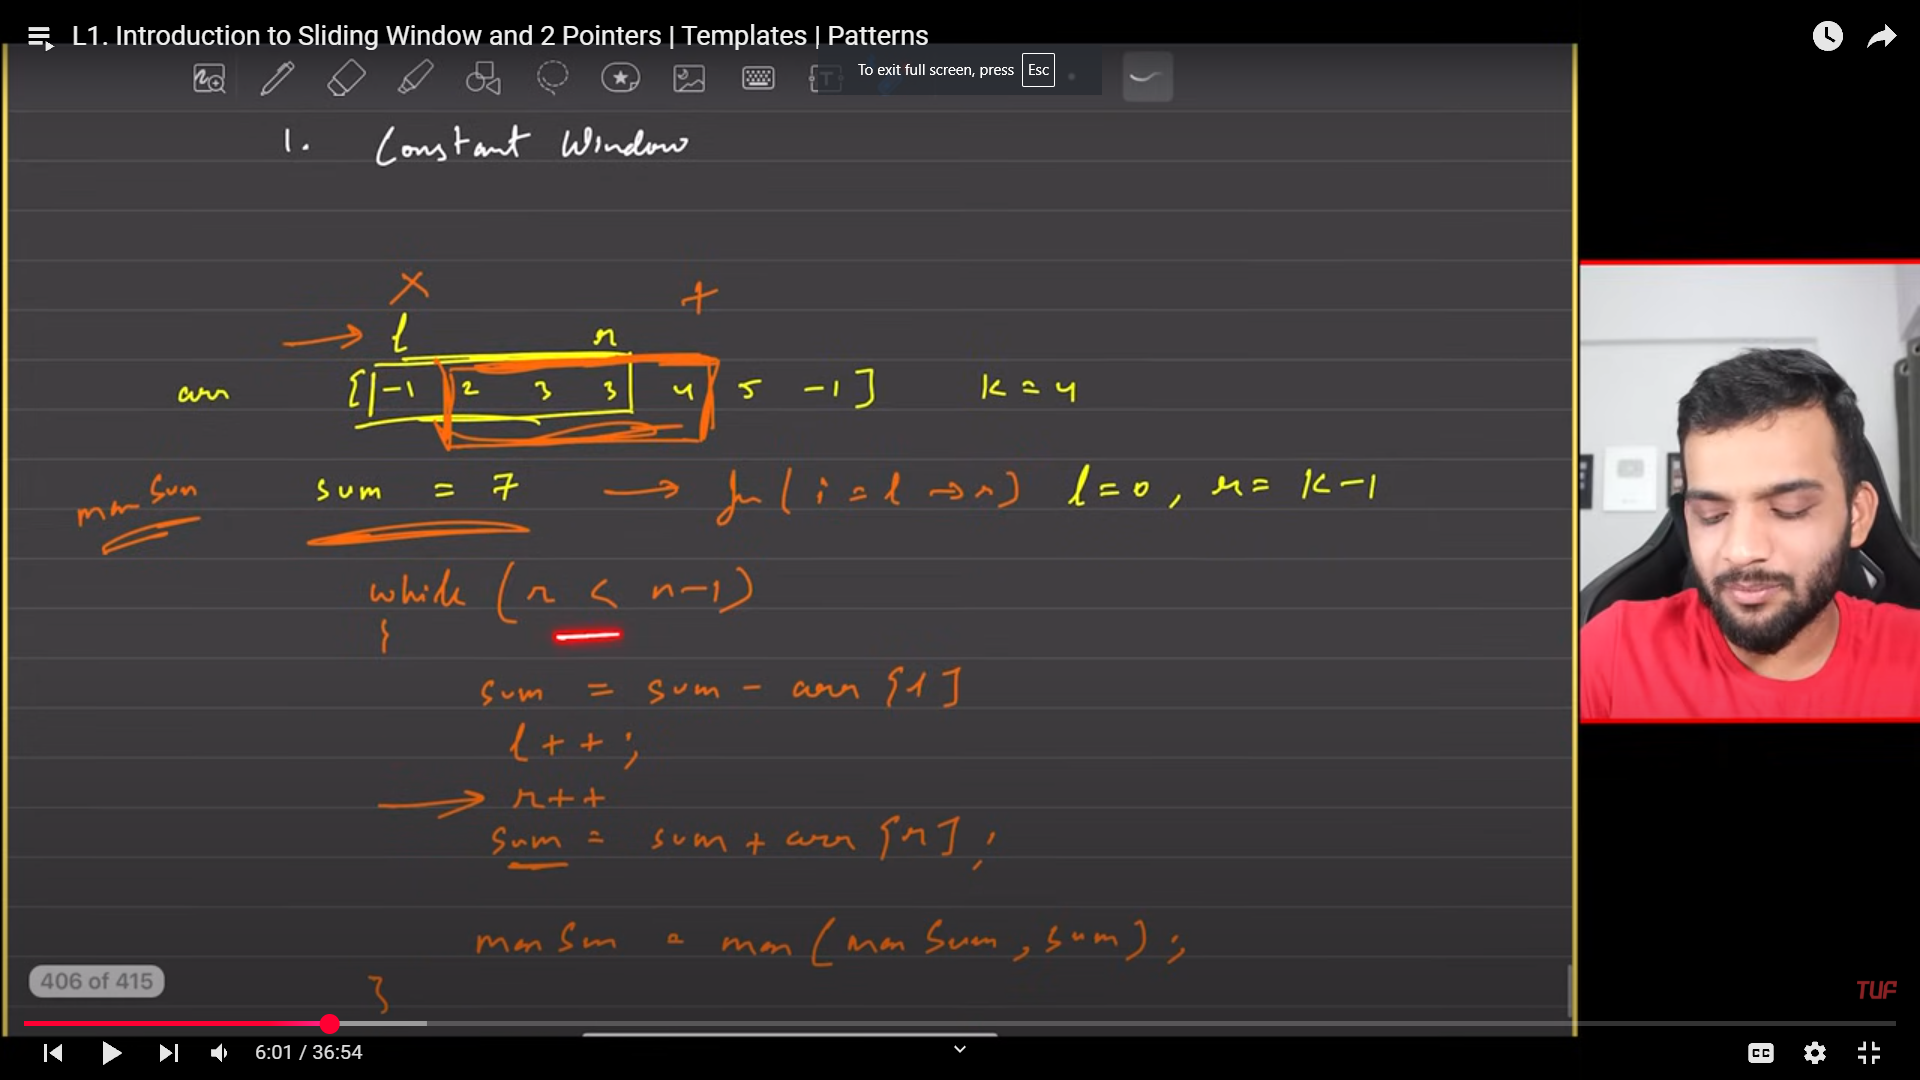 L1. Introduction to Sliding Window and 2 Pointers | Templates | Patterns
To exit full screen, press Esc
1. Constant Window
l r
arr [-1 2 3 3 4 5 -1] k = 4
maxSum sum = 7 → for (i = l → r) l = 0, r = k-1
while (r < n-1)
{
sum = sum - arr[l]
l++;
→ r++
sum = sum + arr[r];
maxSum = max(maxSum, sum);
}
406 of 415
TUF
6:01 / 36:54
CC